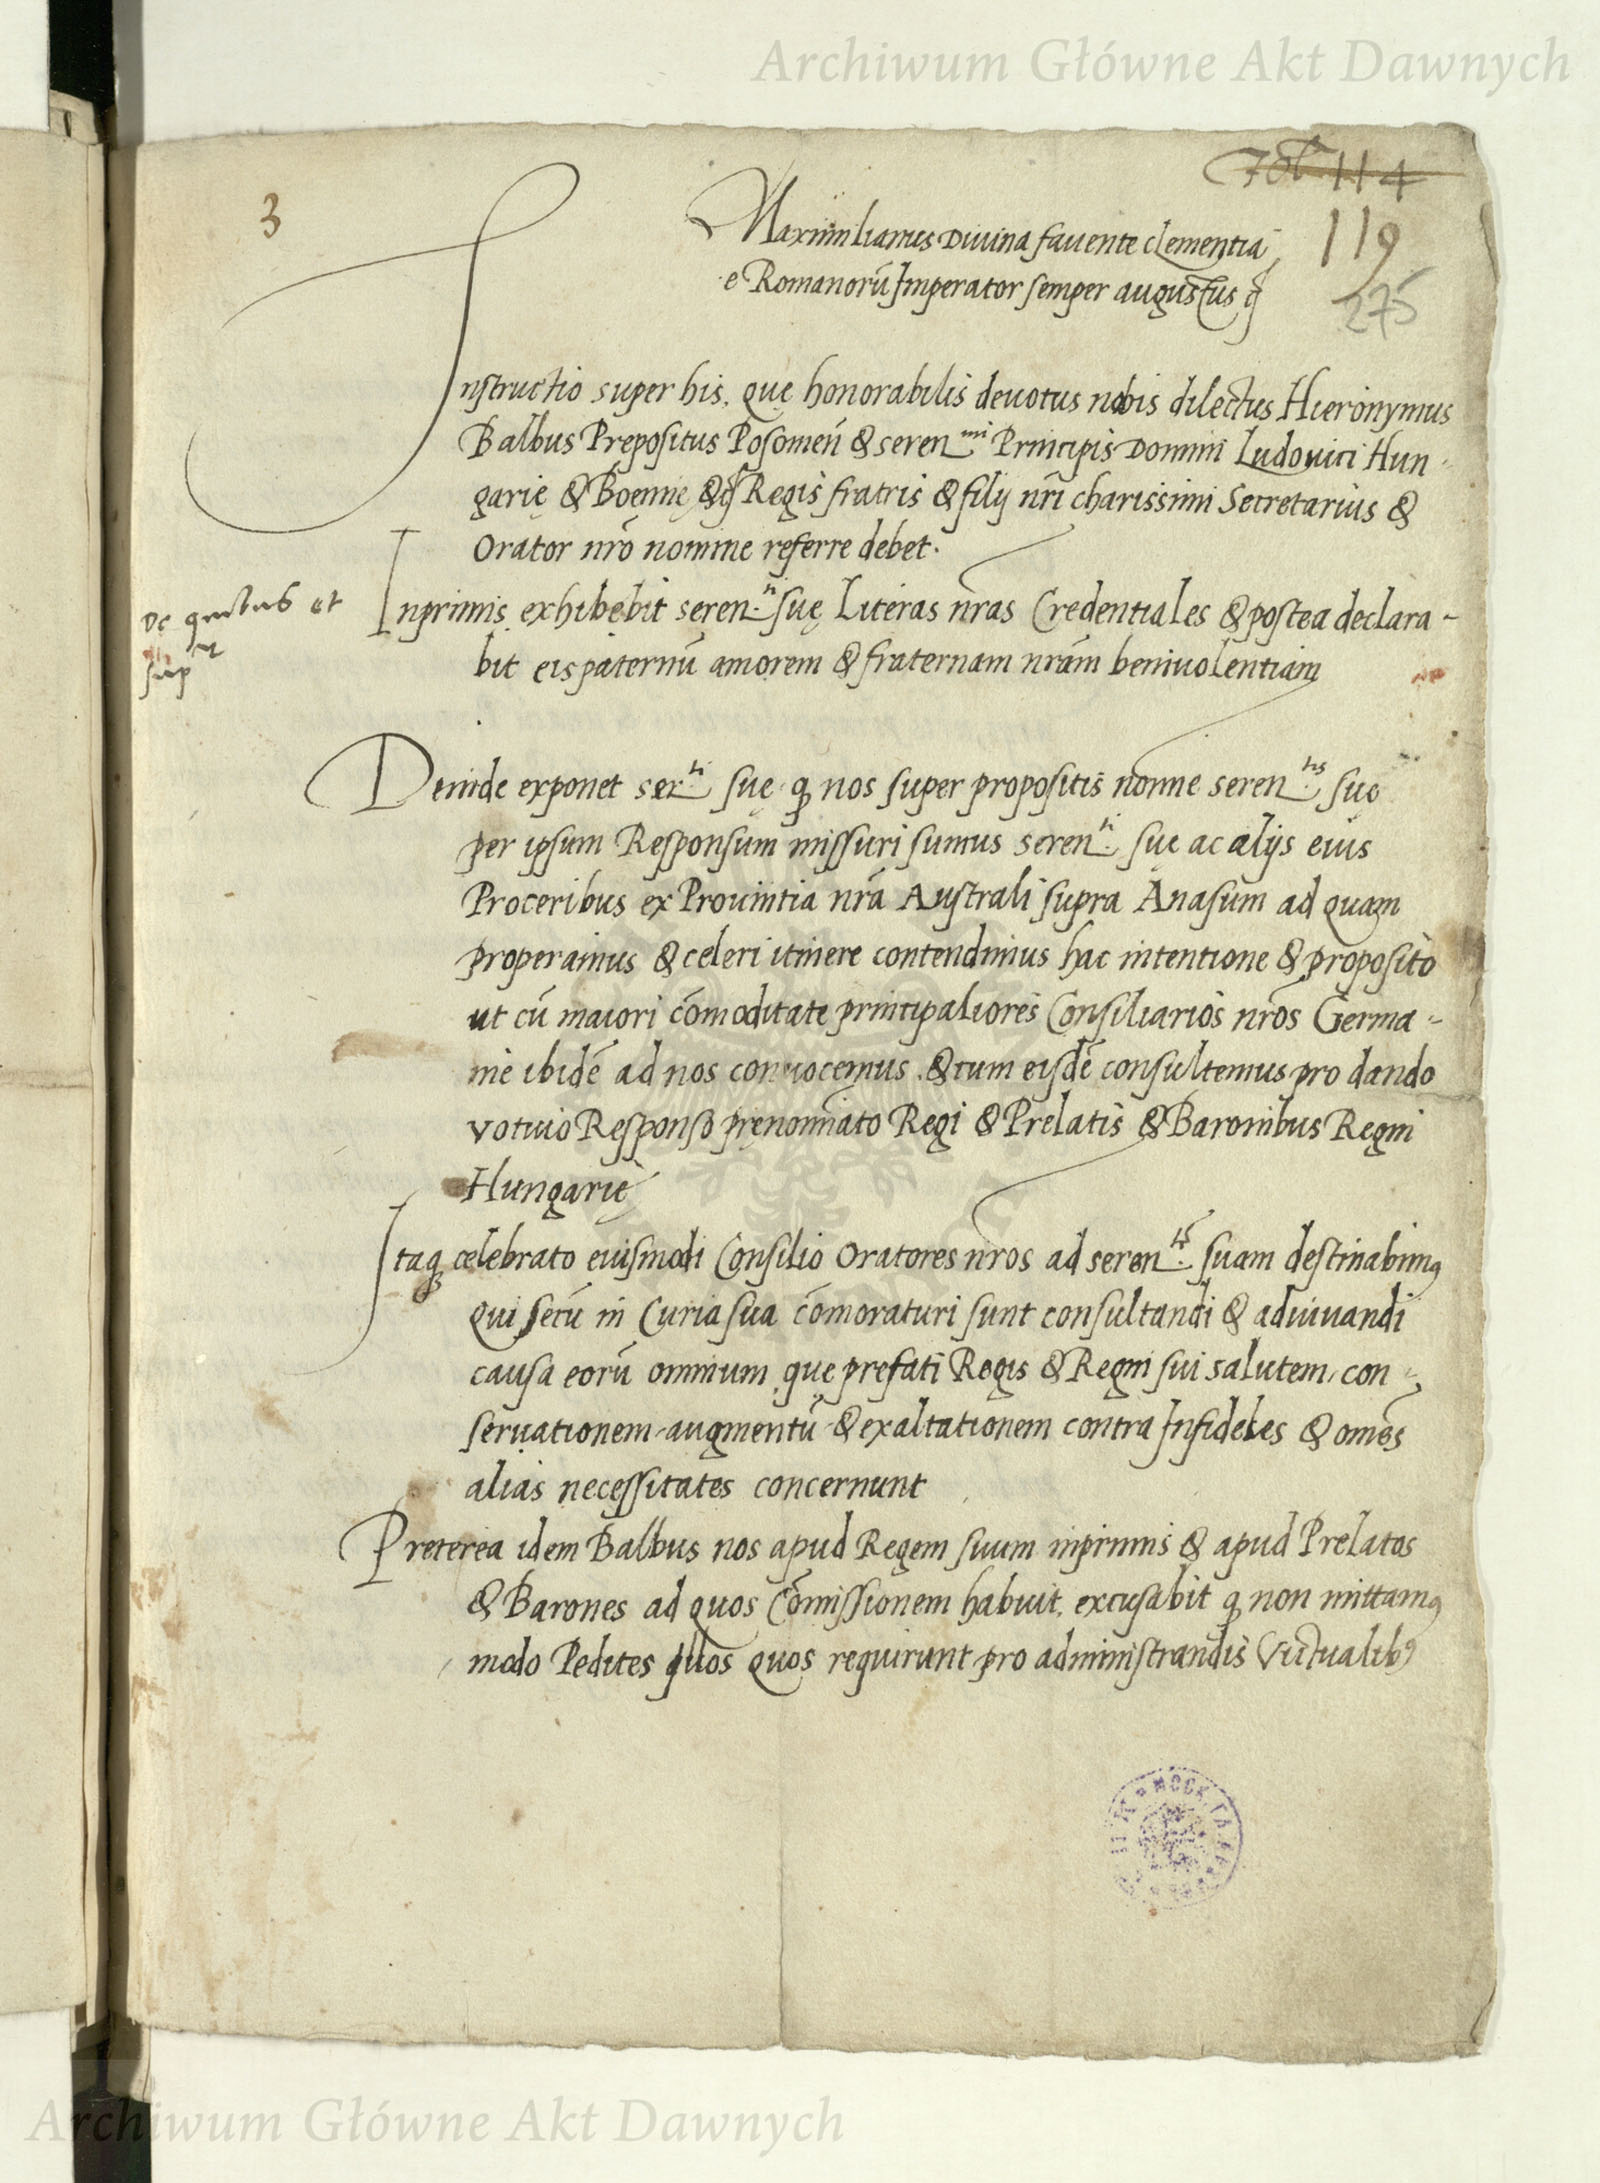 Archiwum Główne Akt Dawnych
Fol. 114
3
119
275
Maximilianus Diuina fauente clementia
e Romanorū Imperator semper augustus
Instructio super his, quę honorabilis deuotus nobis dilectus Hieronymus
Balbus Prepositus Posomeñ & seren.mi Principis Domini Ludouici Hun-
garię & Boemię &c Regis fratris & filij nr̃i charissimi Secretarius &
Orator nr̃o nomine referre debet.
Inprimis exhibebit seren.ti suę Literas nr̃as Credentiales & postea declara-
bit eis paternū amorem & fraternam nr̃am beniuolentiam
De et
sup
Deinde exponet ser.ti suę q̨ nos super propositis noīne seren.tis suę
per ipsum Responsum missuri sumus seren.ti suę ac alijs eius
Proceribus ex Prouintia nr̃a Australi supra Anasum ad quam
properamus & celeri itinere contendimus hac intentione & proposito
ut cū maiori cōmoditate principaliores Consiliarios nr̃os Germa-
nie ibidē ad nos conuocemus & cum eisdē consultemus pro dando
votiuo Responso pręnominato Regi & Prelatis & Baronibus Regni
Hungarię
Itaq̨ celebrato eiusmodi Consilio Oratores nr̃os ad seren.tē suam destinabimꝰ
qui secū in Curia sua cōmoraturi sunt consultandi & adiuuandi
causa eorū omnium quę prefati Regis & Regni sui salutem, con-
seruationem, augmentū & exaltationem contra Infideles & omēs
alias necessitates concernunt
Preterea idem Balbus nos apud Regem suum inprimis & apud Prelatos
& Barones ad quos Cōmissionem habuit, excusabit q̨ non mittamꝰ
modo Pedites illos quos requirunt pro administrandis Victualibꝰ
Archiwum Główne Akt Dawnych